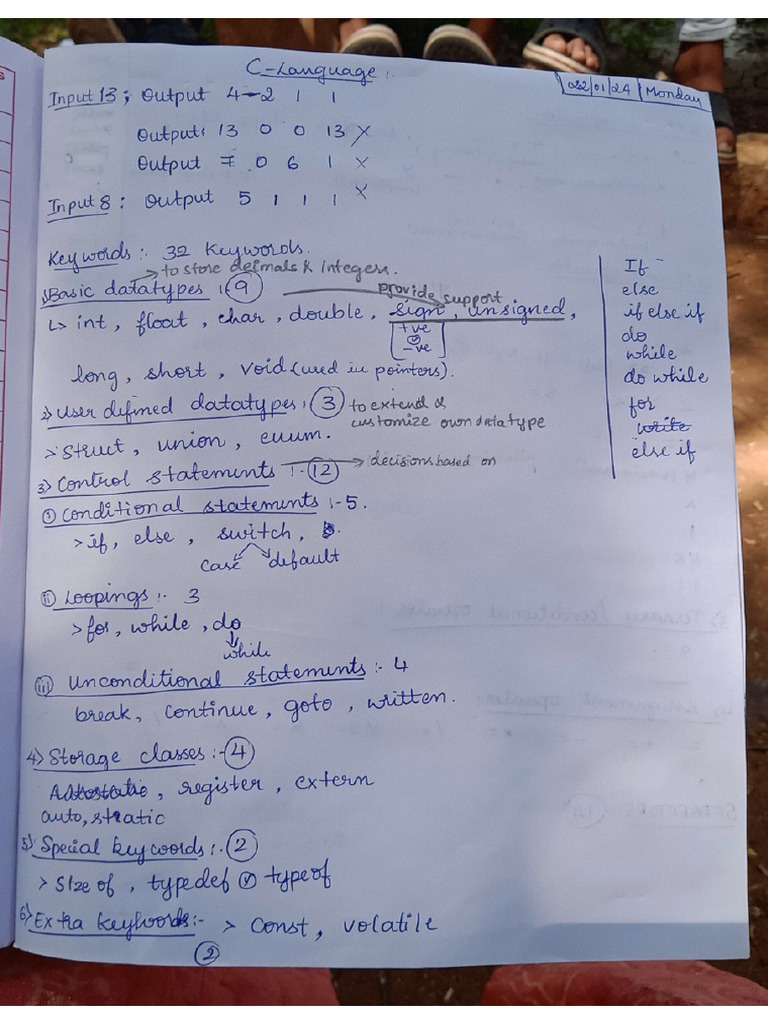 C-Language:
022/01/24 Monday
Input 13; Output 4-2 1 1
Output: 13 0 0 13 X
Output 7 0 6 1 X
Input 8: Output 5 1 1 1 X
Keywords: 32 Keywords.
to store deimals & integers.
1) Basic datatypes :- 9
provide support
int, float, char, double, sign, unsigned,
+ve
-ve
long, short, void (used in pointers).
2) User defined datatypes :- 3 to extend &
customize own datatype
> Struct, union, enum.
3) Control statements :- 12 decisions based on
i) Conditional statements :- 5.
> if, else, switch,
case default
ii) Loopings :- 3
> for, while, do
while
iii) Unconditional statements :- 4
break, continue, goto, written.
4) Storage classes :- 4
, register, extern
auto, static
5) Special keywords :- 2
> Size of, typedef typeof
6) Extra keywords :- > Const, volatile
2
If
else
if else if
do
while
do while
for
write
else if